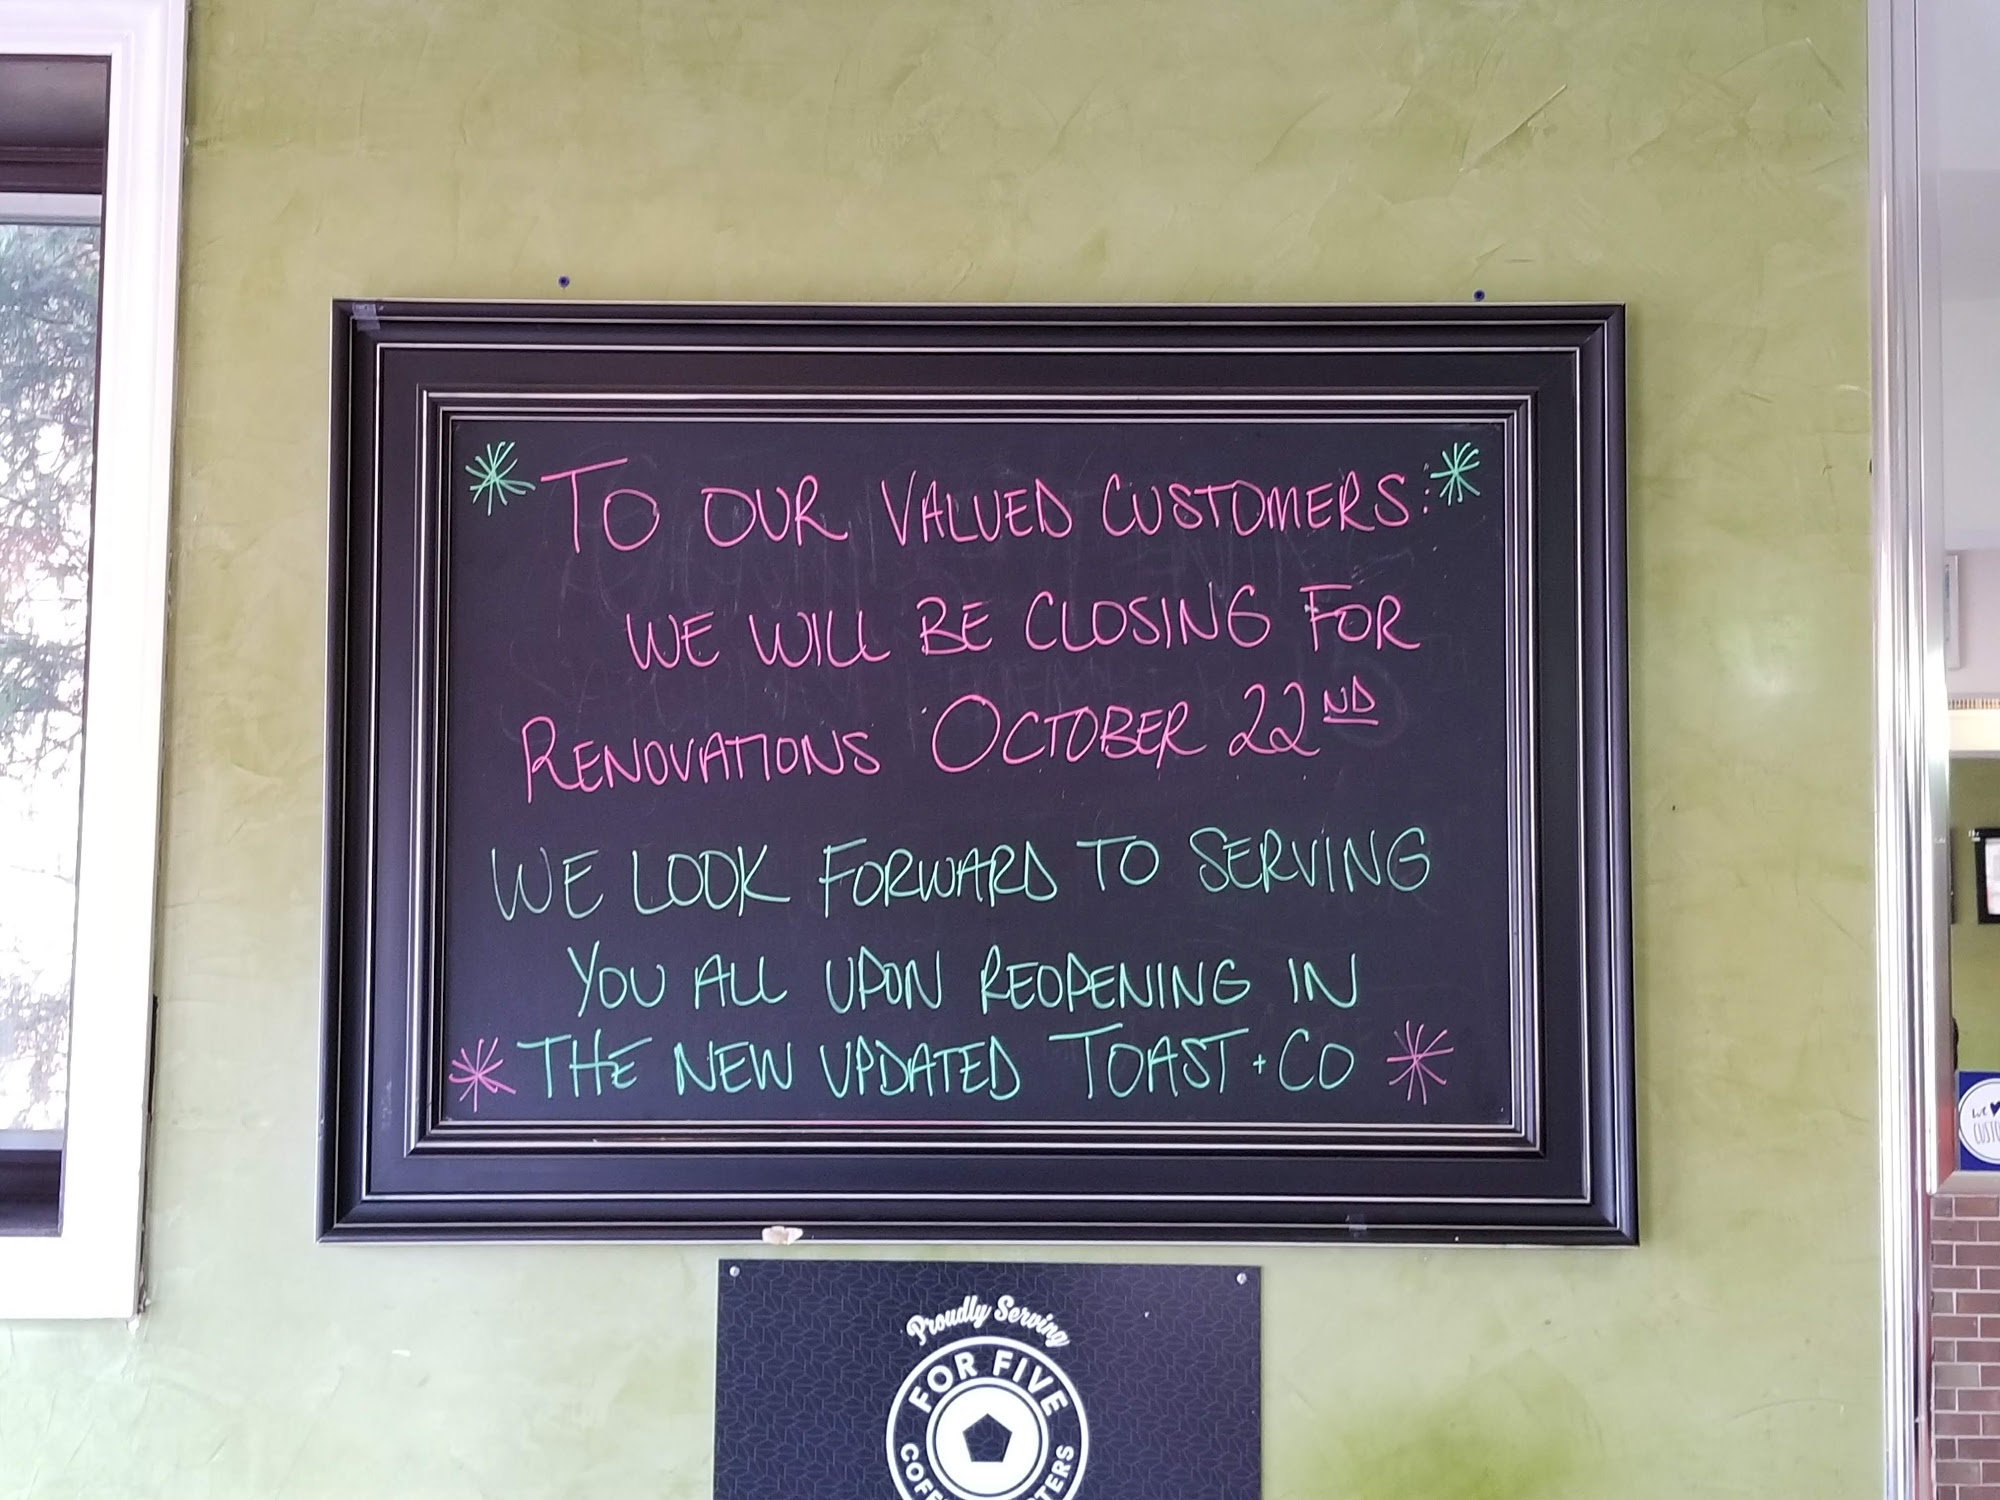 TO OUR VALUED CUSTOMERS:
WE WILL BE CLOSING FOR
RENOVATIONS OCTOBER 22ND
WE LOOK FORWARD TO SERVING
YOU ALL UPON REOPENING IN
THE NEW UPDATED TOAST + CO
Proudly Serving
FOR FIVE
WE